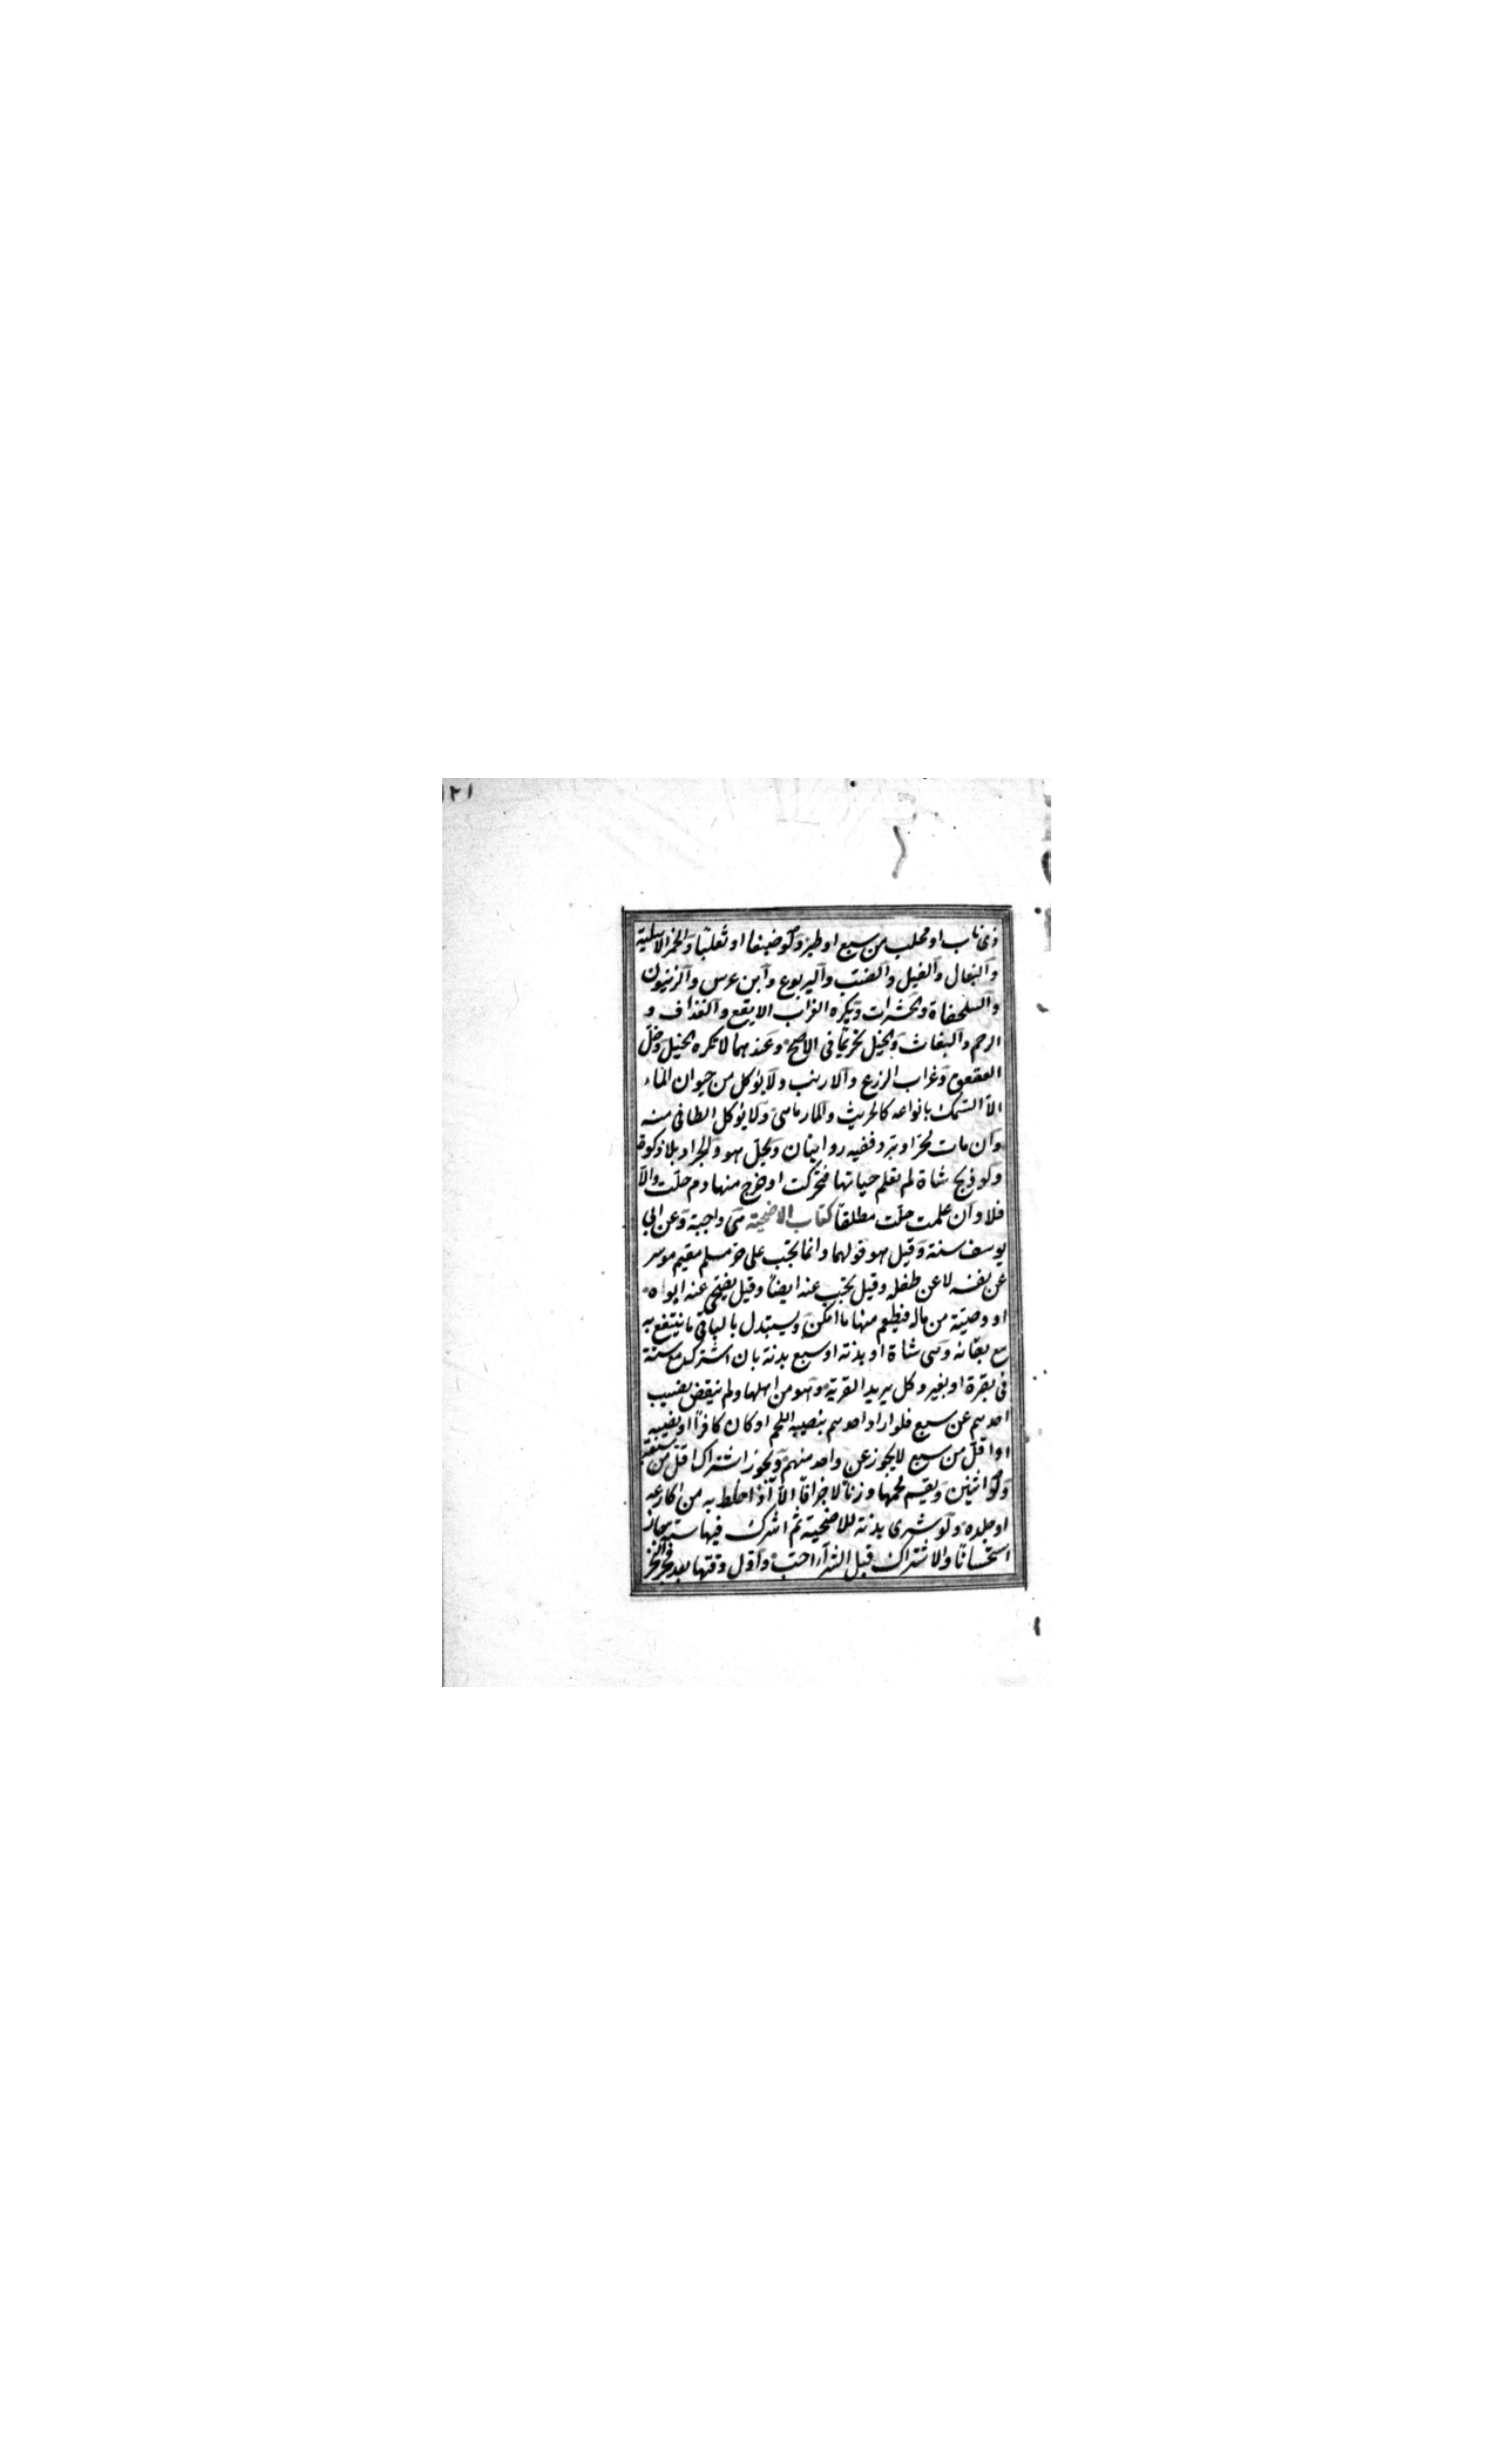 ١٢١
ذى ناب او مخلب من سبع او طير ولو ضبعا او ثعلبا والحمر الاهلية
والبغال والفيل والضب واليربوع وابن عرس والزنبور
والسلحفاة والحشرات ويكره الغراب الابقع والغداف و
الرخم والبغاث والخيل تحريما فى الاصح وعندهما لا تكره الخيل وحل
العقعق وغراب الزرع والارنب ولا يؤكل من حيوان الماء
الا السمك بانواعه كالجريث والمارماهى ولا يؤكل الطافى منه
وان مات لحر او برد ففيه روايتان ويحل هو والجراد بلا ذكوة
ولو ذبح شاة لم تعلم حياتها فتحركت او خرج منها دم حلت والا
فلا وان علمت حلت مطلقا كتاب الاضحية هى واجبة وعن ابى
يوسف سنة وقيل هو قولهما وانما تجب على حر مسلم مقيم موسر
عن نفسه لا عن طفله وقيل تجب عنه ايضا وقيل يضحى عنه ابواه
او وصيته من ماله فيطعم منها ما امكن ويستبدل بالباقى ما ينتفع به
مع بقائه وهى شاة او بدنة او سبع بدنة بان اشترك مع ستة
فى بقرة او بعير وكل يريد القربة وهو من اهلها ولم ينقص نصيب
احدهم عن سبع فلو اراد احدهم بنصيبه اللحم او كان كافرا او نصيبه
اقل من سبع لا يجوز عن واحد منهم ويجوز اشتراك اقل من سبعة
ولو اثنين ويقسم لحمها وزنا لا جزافا الا اذا خلط به من اكارعه
او جلده ولو شرى بدنة للاضحية ثم اشرك فيها ستة جاز
استحسانا والاشتراك قبل الشراء احب واول وقتها بعد فجر النحر